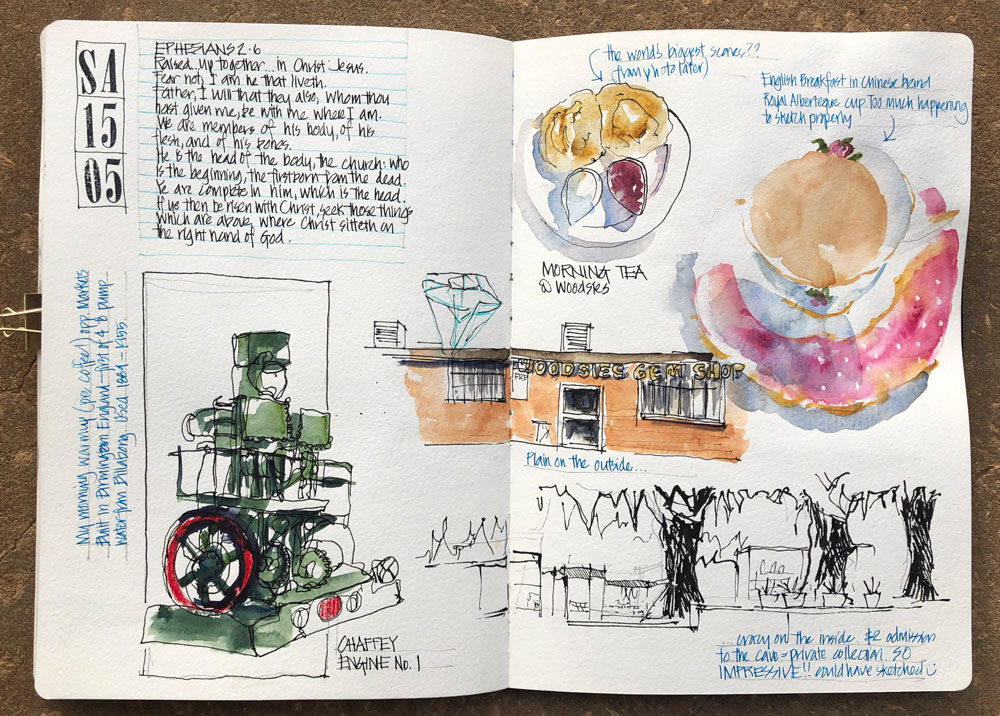 SA
15
05
EPHESIANS 2·6
Raised up together in Christ Jesus.
Fear not; I am he that liveth.
Father, I will that they also, whom thou
hast given me, be with me where I am.
We are members of his body, of his
flesh, and of his bones.
He is the head of the body, the church: who
is the beginning, the firstborn from the dead.
Ye are complete in him, which is the head.
If ye then be risen with Christ, seek those things
which are above, where Christ sitteth on
the right hand of God.
My morning warmup (pre coffee!) opp. Markets
Built in Birmingham England - first of 4 to pump
water from Billabong. Used 1889 - 1955
CHAFFEY
ENGINE No. 1
the world's biggest scones??
(from photo later)
MORNING TEA
@ WOODSIES
English Breakfast in Chinese brand
Royal Alberteque cup. Too much happening
to sketch properly
WOODSIES GEM SHOP
FRE
Plain on the outside...
... crazy on the inside. $2 admission
to the cave = private collection. SO
IMPRESSIVE!! could have sketched